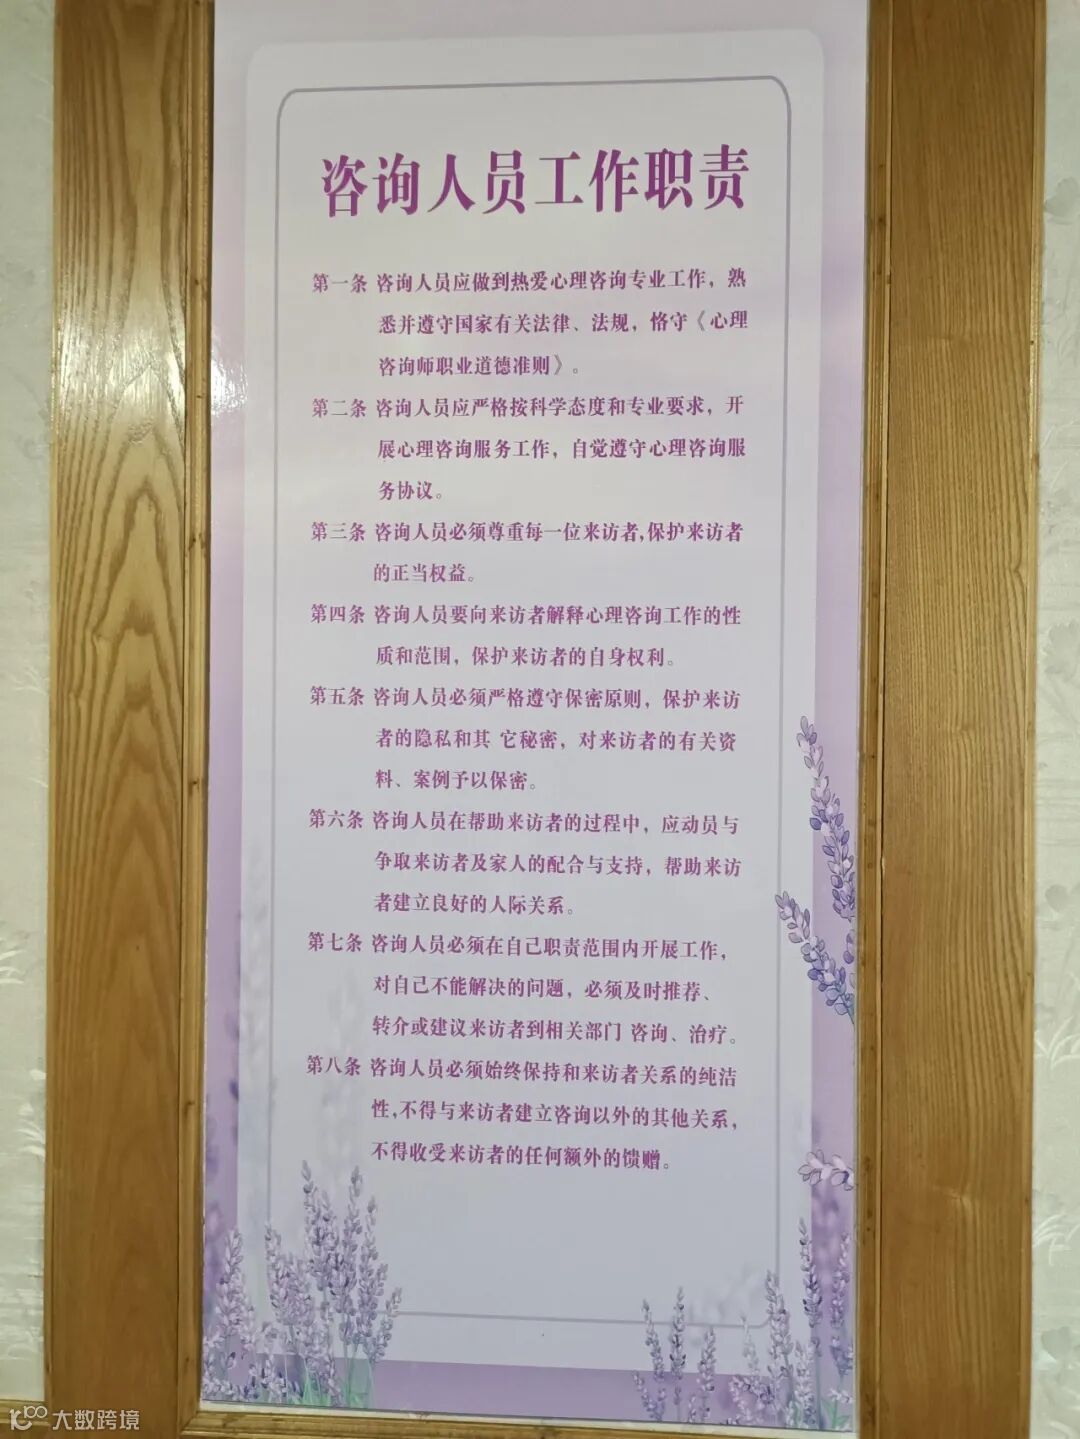 咨询人员工作职责
第一条 咨询人员应做到热爱心理咨询专业工作，熟
悉并遵守国家有关法律、法规，恪守《心理
咨询师职业道德准则》。
第二条 咨询人员应严格按科学态度和专业要求，开
展心理咨询服务工作，自觉遵守心理咨询服
务协议。
第三条 咨询人员必须尊重每一位来访者,保护来访者
的正当权益。
第四条 咨询人员要向来访者解释心理咨询工作的性
质和范围，保护来访者的自身权利。
第五条 咨询人员必须严格遵守保密原则，保护来访
者的隐私和其 它秘密，对来访者的有关资
料、案例予以保密。
第六条 咨询人员在帮助来访者的过程中，应动员与
争取来访者及家人的配合与支持，帮助来访
者建立良好的人际关系。
第七条 咨询人员必须在自己职责范围内开展工作，
对自己不能解决的问题，必须及时推荐、
转介或建议来访者到相关部门 咨询、治疗。
第八条 咨询人员必须始终保持和来访者关系的纯洁
性,不得与来访者建立咨询以外的其他关系，
不得收受来访者的任何额外的馈赠。
大数跨境